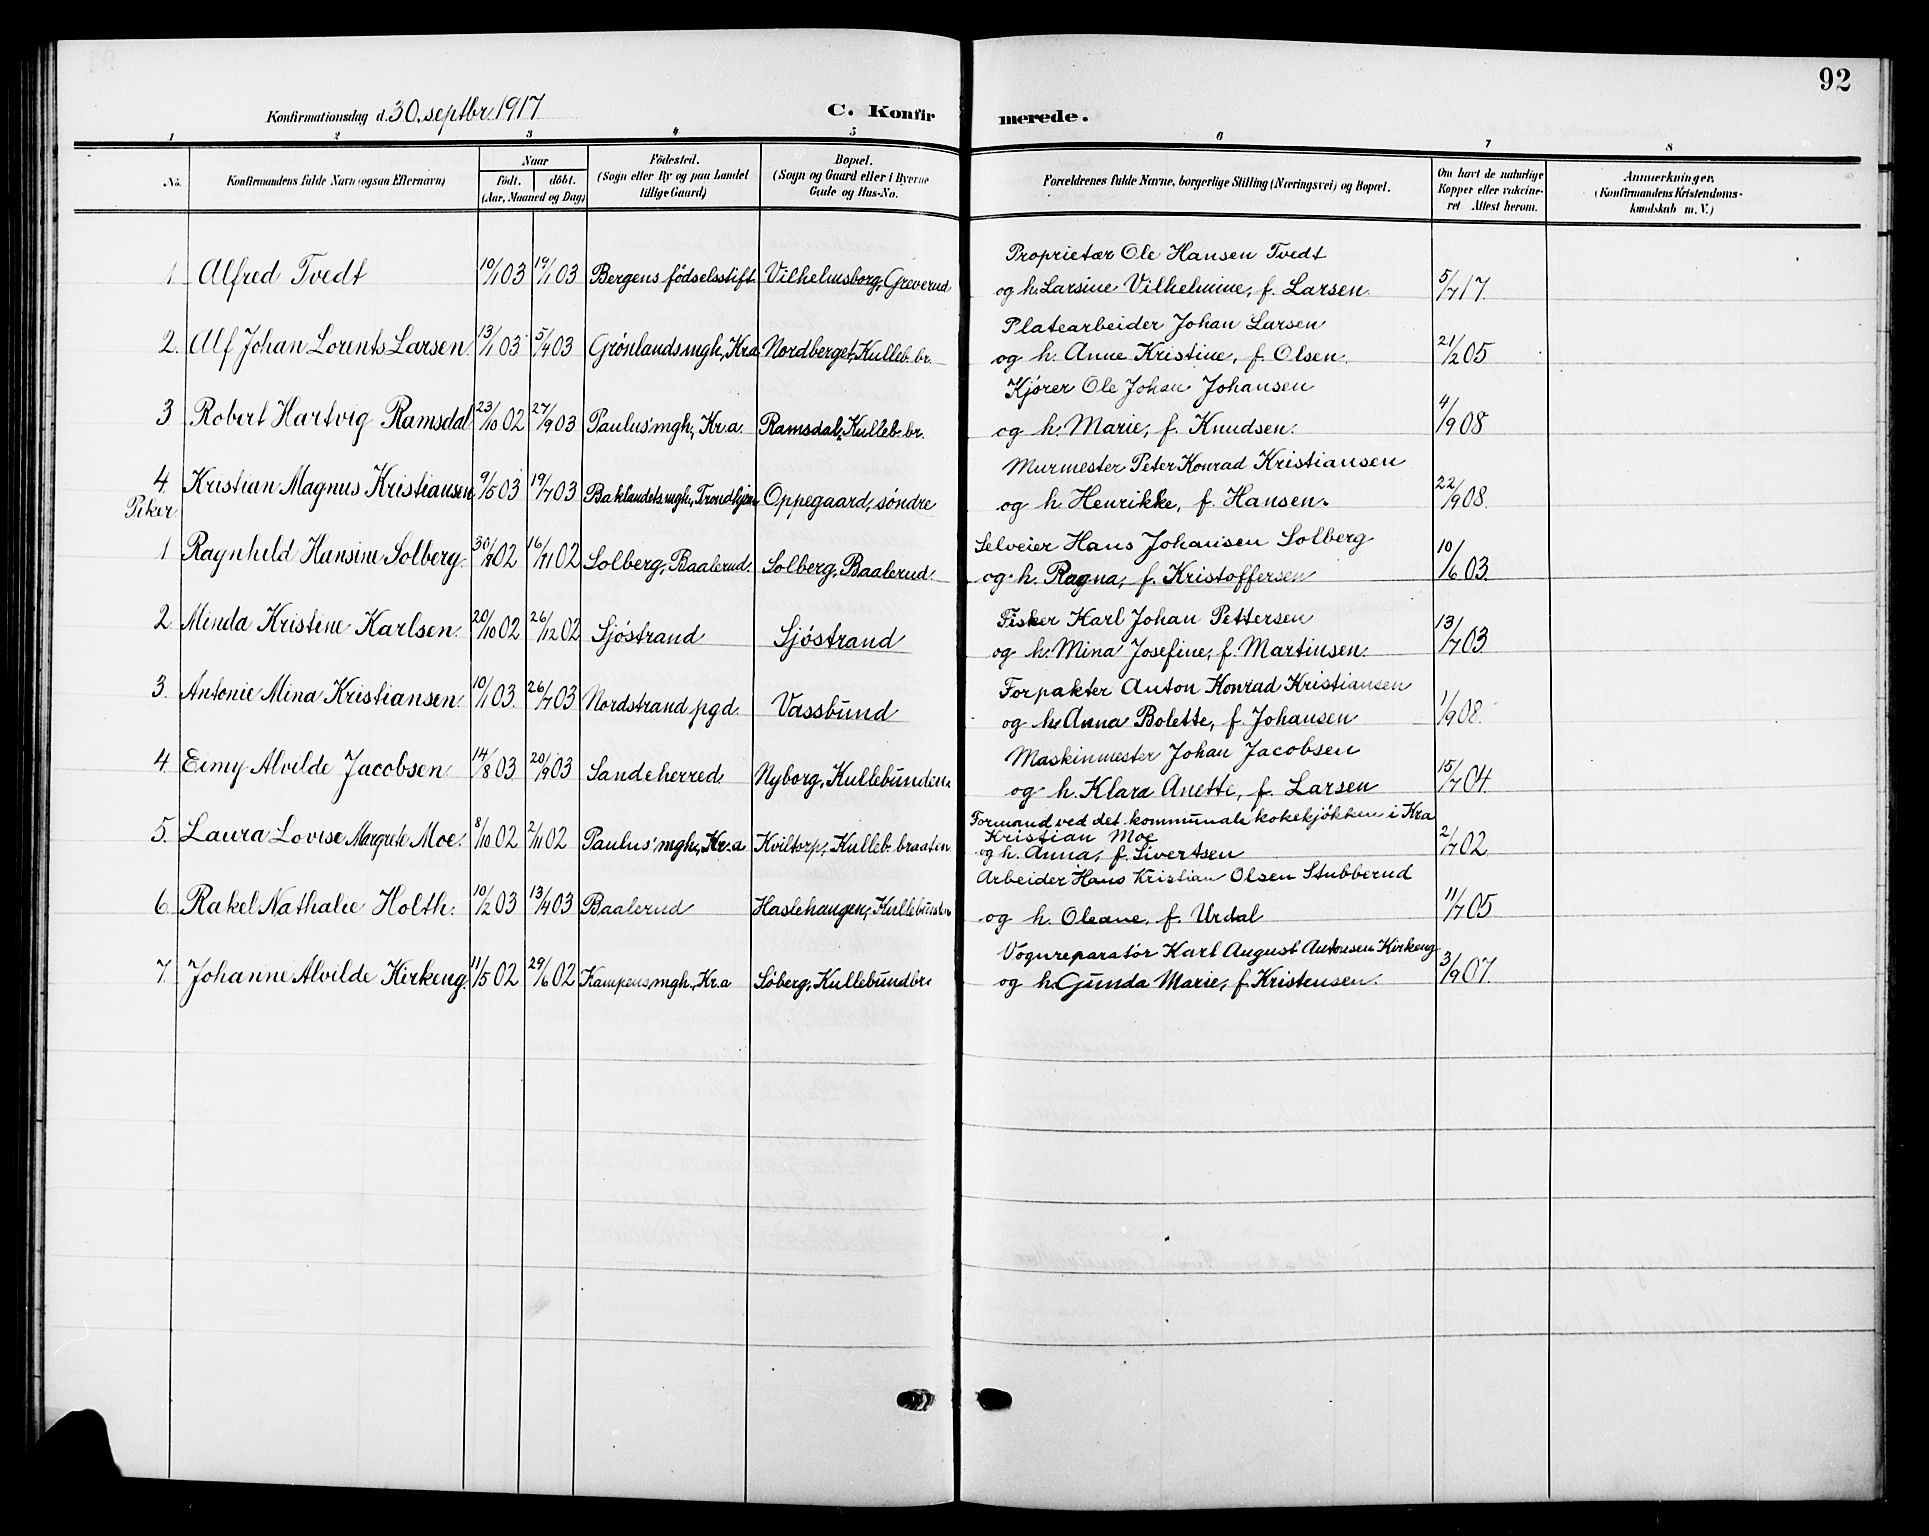 92
Konfirmationsdag d. 30. septbr. 1917 C. Konfirmerede.
1 2 3 4 5 6 7 8
No. Konfirmandens fulde Navn (ogsaa Efternavn) Naar født. døbt. (Aar, Maaned og Dag) Födested. (Sogn eller By og paa Landet tillige Gaard) Bopæl. (Sogn og Gaard eller i Byerne Gade og Hus-No. Forældrenes fulde Navne, borgerlige Stilling (Næringsvei) og Bopæl. Om havt de naturlige Kopper eller vakcineret Attest herom. Anmerkninger. (Konfirmandens Kristendomskundskab m. V.)
Proprietær Ole Hansen Tvedt
1. Alfred Tvedt 10/1 03 19/1 03 Bergens fødselsstift. Vilhelmsborg, Greverud og h. Larsine Vilhelmine, f. Larsen. 5/7 17.
Platearbeider Johan Larsen
2. Alf Johan Lorents Larsen. 13/1 03. 5/4 03 Grønlands mgh, Kr.a Nordberget, Kulleb. br. og h. Anne Kristine, f. Olsen. 21/2 05
Kjører Ole Johan Johansen
3 Robert Hartvig Ramsdal 23/10 02 27/9 03 Paulus' mgh., Kr.a. Ramsdal, Kulleb. br. og h. Marie, f. Knudsen. 4/9 08
Murmester Peter Konrad Kristiansen
4. Kristian Magnus Kristiansen 9/5 03 19/7 03 Baklandets mgh., Trondhjem Oppegaard, søndre og h. Henrikke, f. Hansen. 22/9 08.
Piker
Selveier Hans Johansen Solberg
1 Ragnhild Hansine Solberg. 02 16/11 02 Solberg, Baalerud. Solberg, Baalerud. og h. Ragna, f. Kristoffersen 10/6 03.
Fisker Karl Johan Pettersen
2. Minda Kristine Karlsen. 20/10 02 26/12 02 Sjøstrand Sjøstrand og h. Mina Josefine, f. Martinsen. 13/7 03
Forpakter Anton Konrad Kristiansen
3. Antonie Mina Kristiansen 10/1 03. 26/7 03 Nordstrand pgd. Vassbund og h. Anna Bolette, f. Johansen 1/9 08.
Maskinmester Johan Jacobsen
4. Eimy Alvilde Jacobsen 14/8 03 20/9 03 Sandeherred. Nyborg, Kullebunden. og h. Klara Anette, f. Larsen 15/7 04.
Formand ved det kommunale kokekjøkken i Kra
Kristian Moe
5. Laura Lovise Margrete Moe. 8/10 02 2/11 02 Paulus' mgh., Kr.a Kviltorp, Kulleb. braaten og h. Anna, f. Sivertsen 2/7 02
Arbeider Hans Kristian Olsen Stubberud
6. Rakel Nathalie Holth. 10/2 03 13/4 03 Baalerud Haslehaugen, Kullebunden og h. Oleane, f. Urdal 11/7 05
Vognreparatør Karl August Antonsen Kirkeng
7. Johanne Alvilde Kirkeng. 11/5 02 29/6 02 Kampens mgh., Kr.a Søberg, Kullebundbr. og h. Gunda Marie, f. Kristensen. 3/9 07.